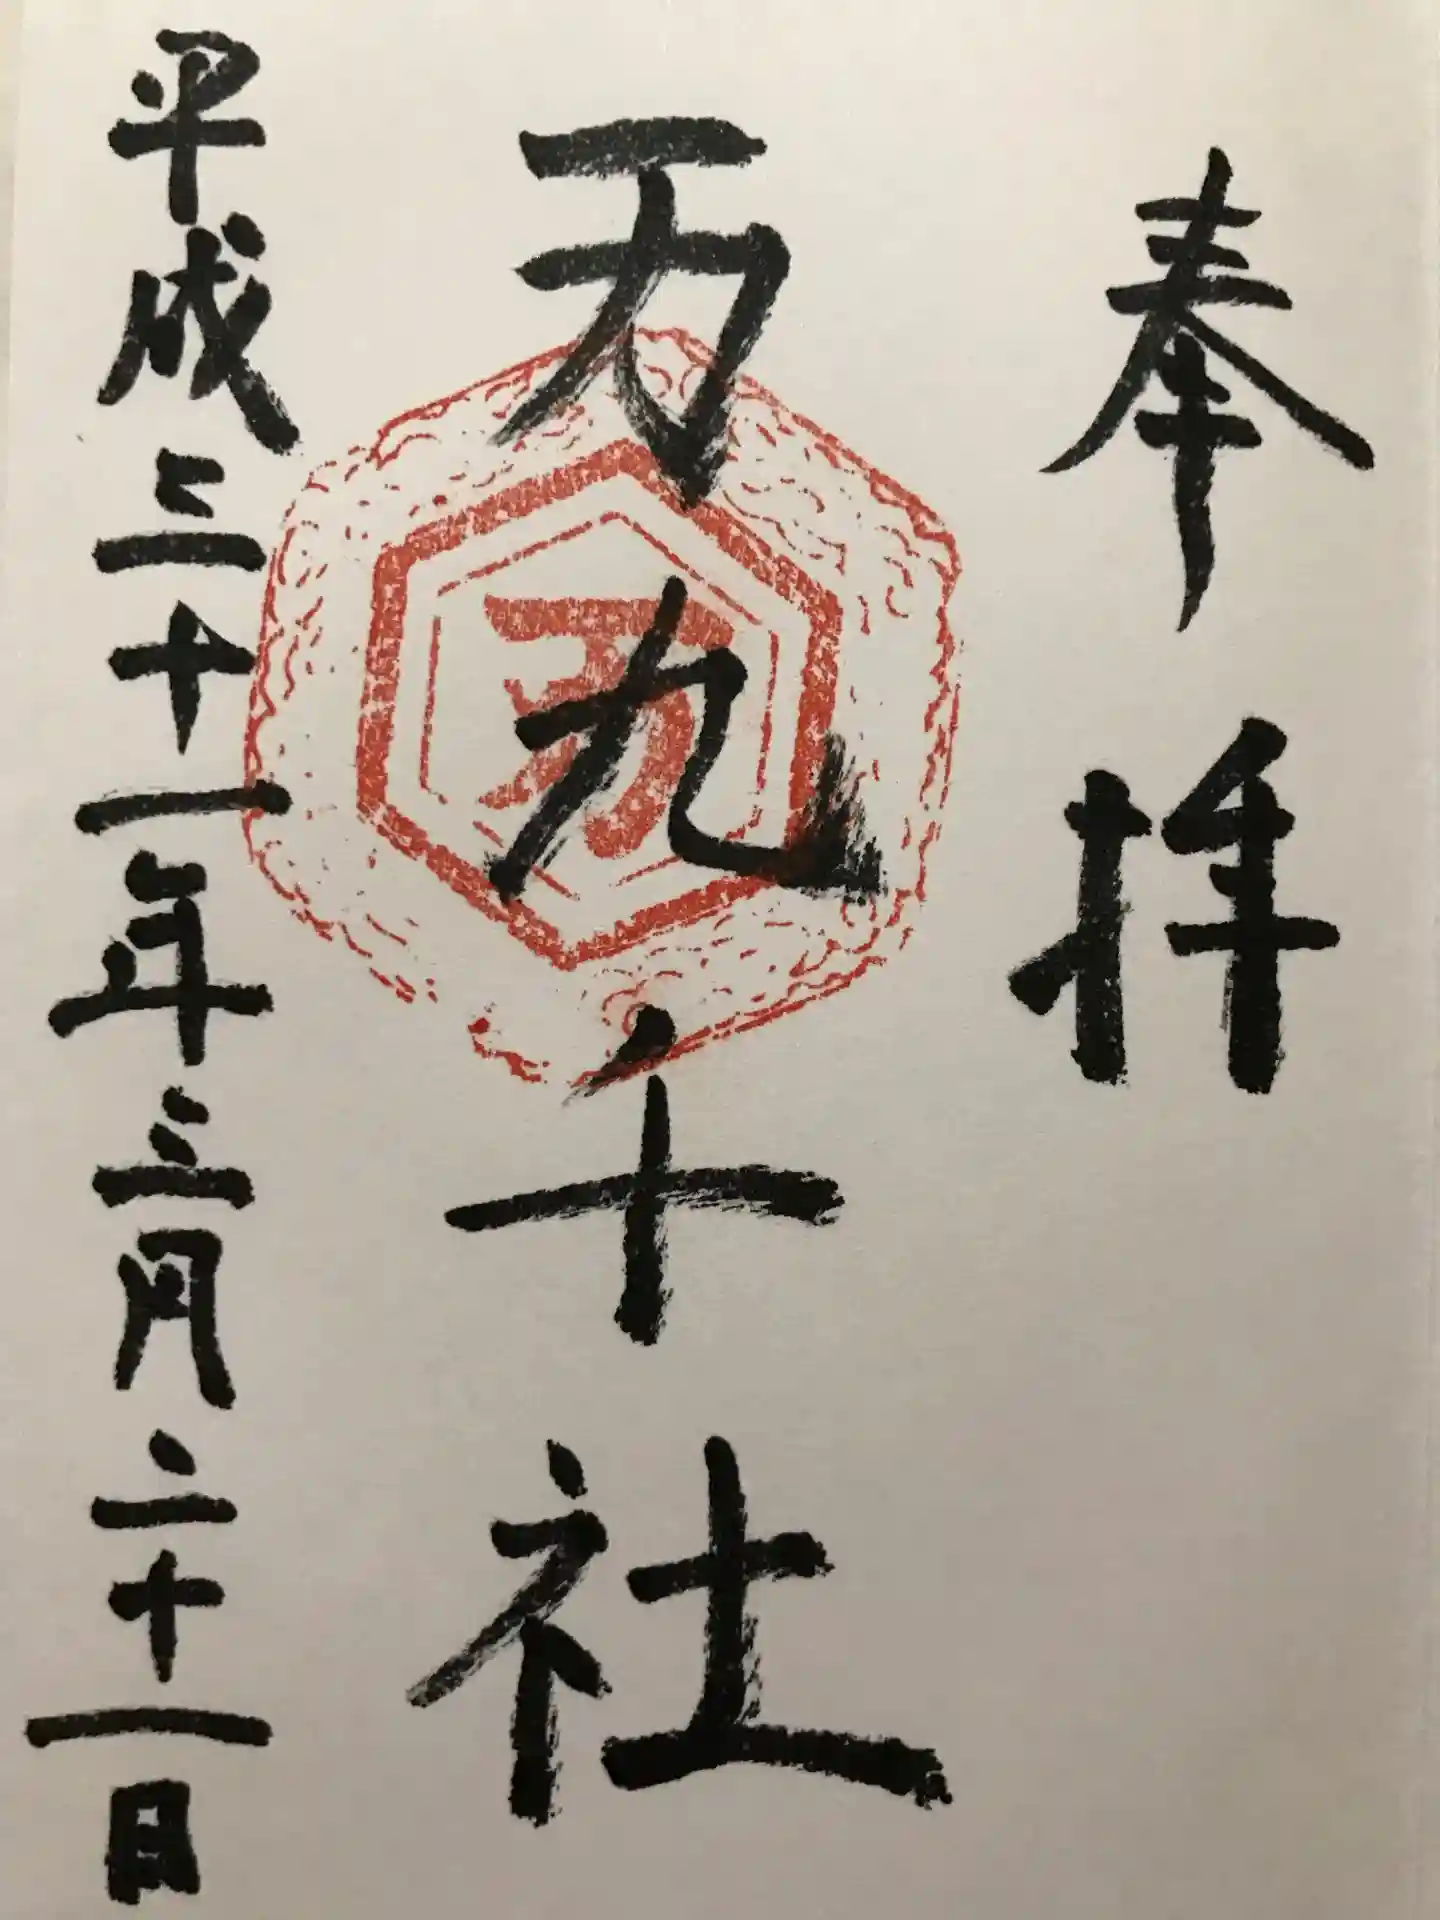 奉拝
万九千社
平成三十一年三月二十一日